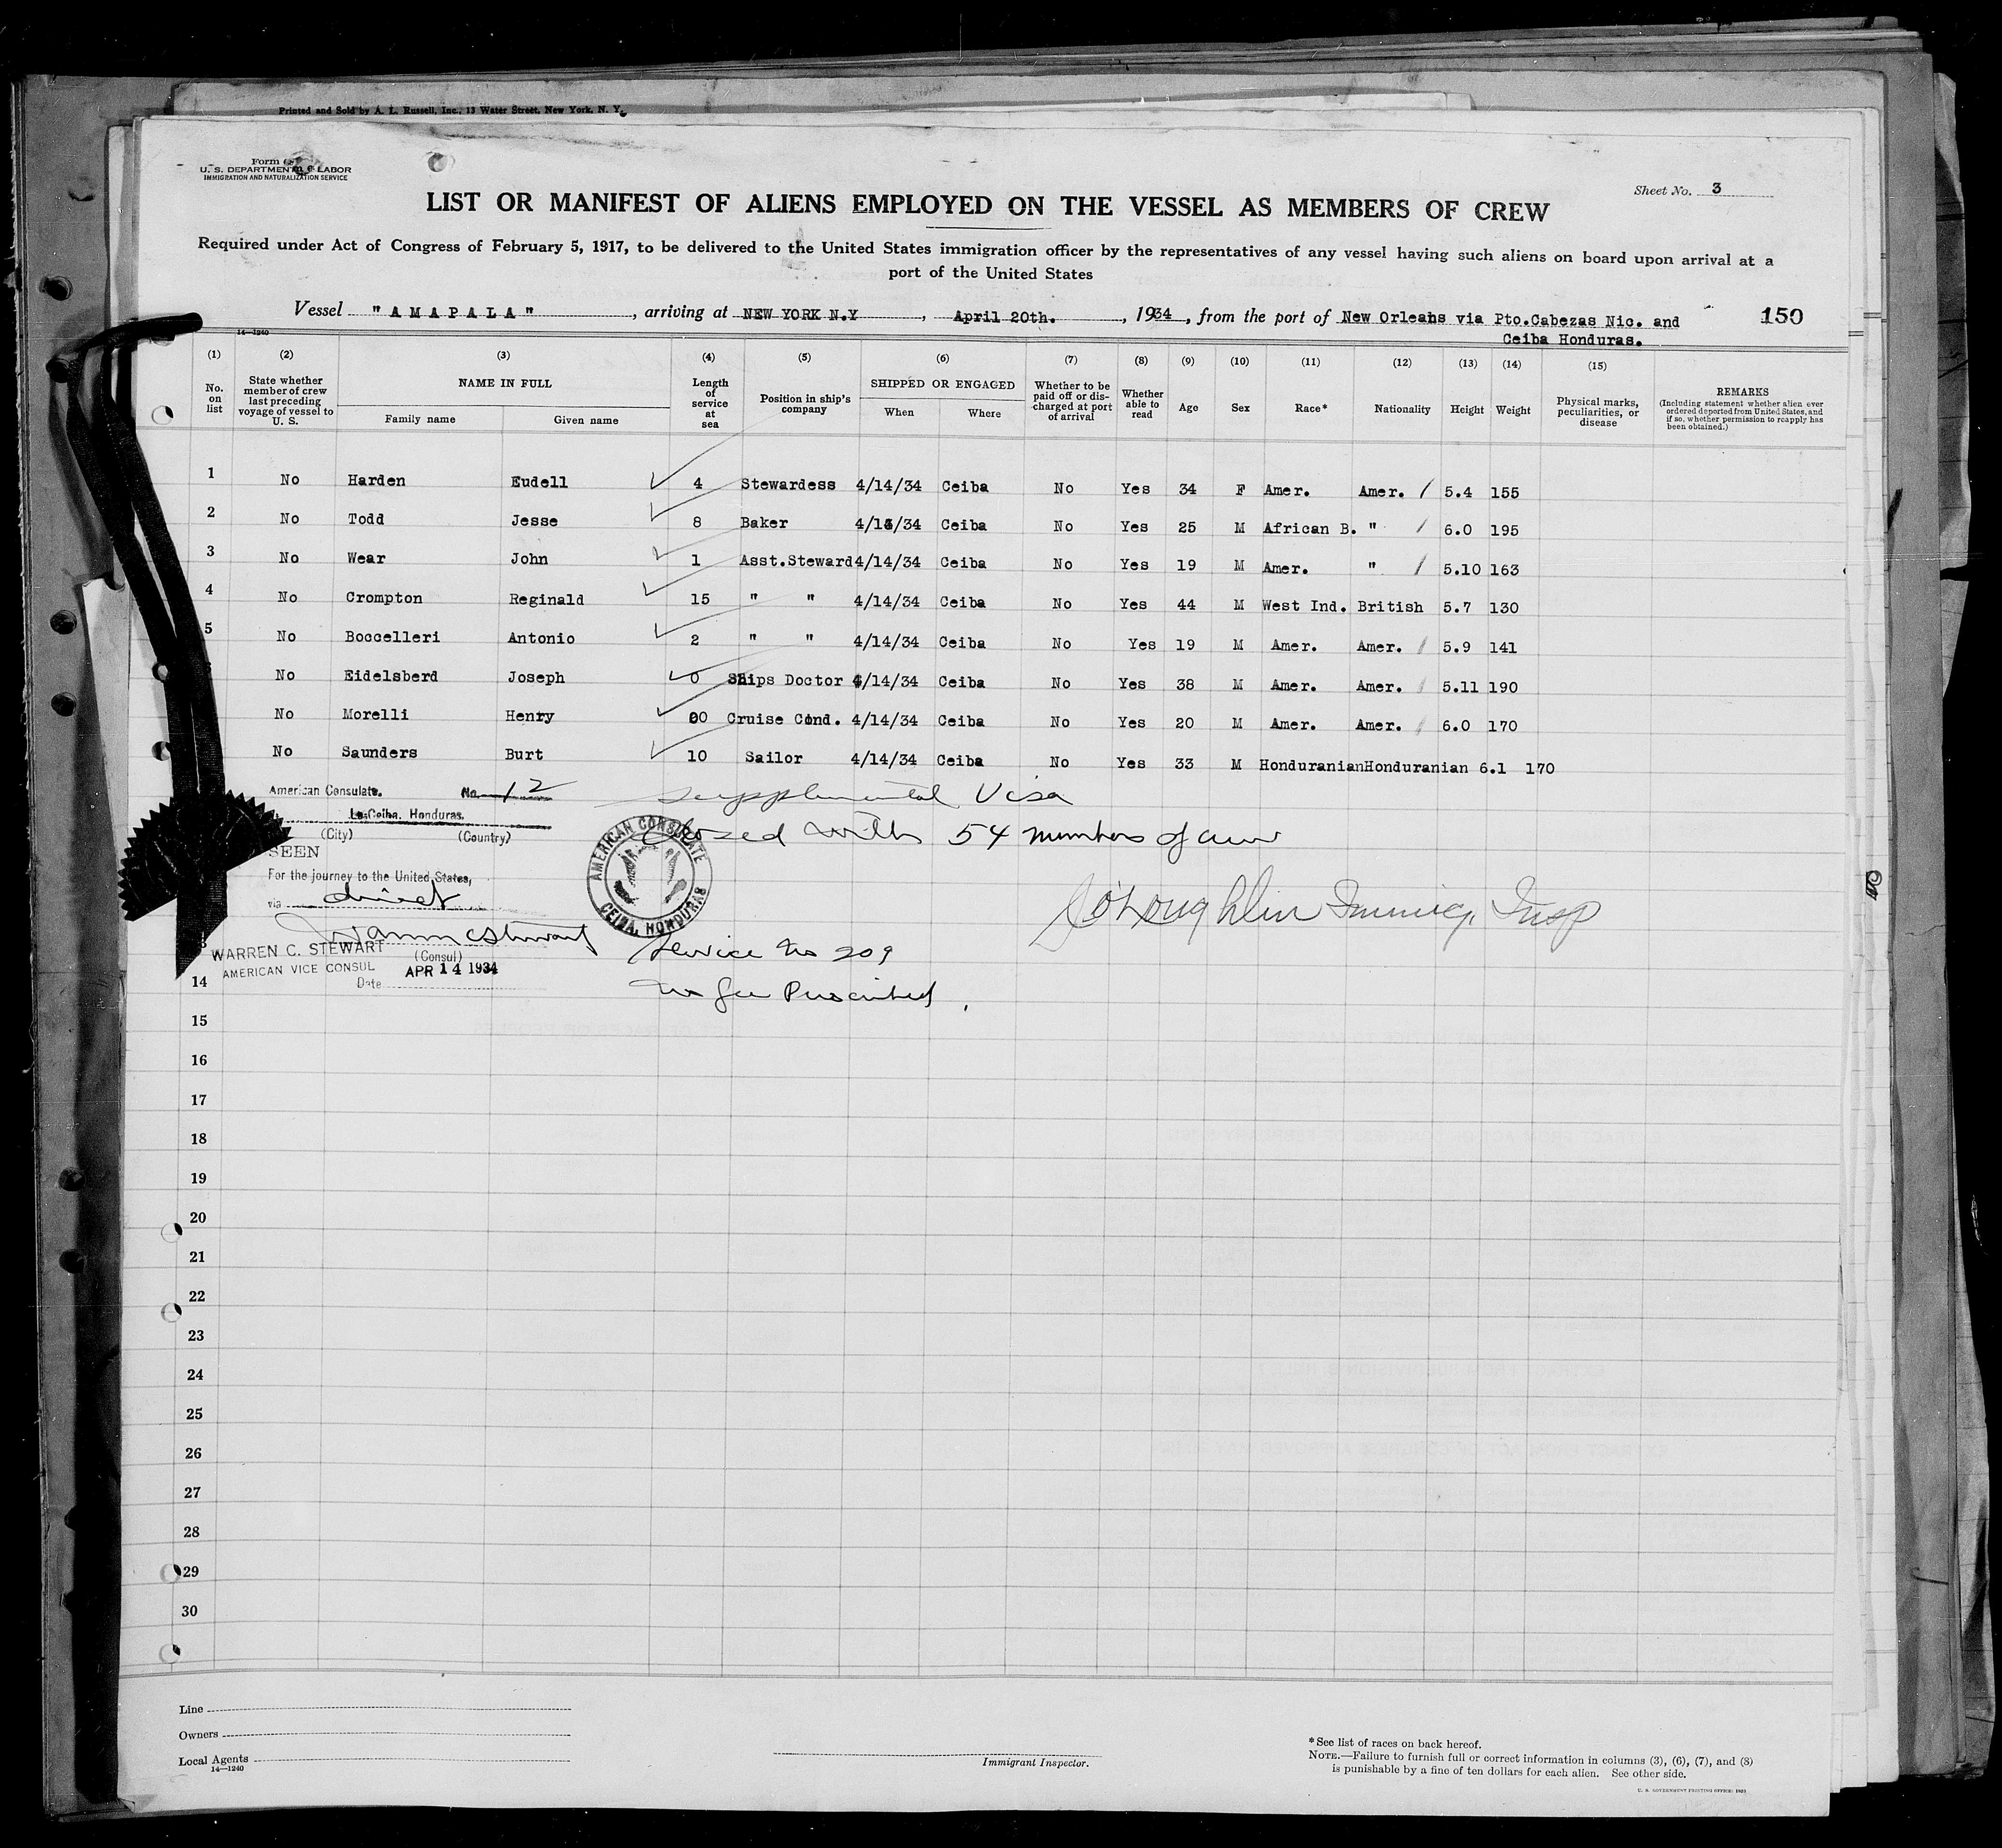 Printed and Sold by A. L. Russell, Inc., 13 Water Street, New York, N. Y.
Form
U. S. DEPARTMENT OF LABOR
IMMIGRATION AND NATURALIZATION SERVICE
Sheet No. 3
LIST OR MANIFEST OF ALIENS EMPLOYED ON THE VESSEL AS MEMBERS OF CREW
Required under Act of Congress of February 5, 1917, to be delivered to the United States immigration officer by the representatives of any vessel having such aliens on board upon arrival at a
port of the United States
Vessel "AMAPALA", arriving at NEW YORK N.Y, April 20th., 1934, from the port of New Orleans via Pto.Cabezas Nic. and 150
Ceiba Honduras.
14—1240
(1) (2) (3) (4) (5) (6) (7) (8) (9) (10) (11) (12) (13) (14) (15)
No. on list State whether member of crew last preceding voyage of vessel to U. S. NAME IN FULL Family name Given name Length of service at sea Position in ship's company SHIPPED OR ENGAGED When Where Whether to be paid off or discharged at port of arrival Whether able to read Age Sex Race* Nationality Height Weight Physical marks, peculiarities, or disease REMARKS (Including statement whether alien ever ordered deported from United States, and if so, whether permission to reapply has been obtained.)
1 No Harden Eudell 4 Stewardess 4/14/34 Ceiba No Yes 34 F Amer. Amer. / 5.4 155
2 No Todd Jesse 8 Baker 4/14/34 Ceiba No Yes 25 M African B. " / 6.0 195
3 No Wear John 1 Asst.Steward 4/14/34 Ceiba No Yes 19 M Amer. " / 5.10 163
4 No Crompton Reginald 15 " " 4/14/34 Ceiba No Yes 44 M West Ind. British 5.7 130
5 No Boccelleri Antonio 2 " " 4/14/34 Ceiba No Yes 19 M Amer. Amer. / 5.9 141
No Eidelsberd Joseph 0 Ships Doctor 4/14/34 Ceiba No Yes 38 M Amer. Amer. / 5.11 190
No Morelli Henry 00 Cruise Cond. 4/14/34 Ceiba No Yes 20 M Amer. Amer. / 6.0 170
No Saunders Burt 10 Sailor 4/14/34 Ceiba No Yes 33 M Honduranian Honduranian 6.1 170
American Consulate. No. 12
La Ceiba, Honduras.
(City) (Country)
SEEN
For the journey to the United States,
via direct
Warren C Stewart
WARREN C. STEWART
(Consul)
AMERICAN VICE CONSUL
APR 14 1934
Date
Supplemental Visa
Closed with 54 members of crew
AMERICAN CONSULATE
CEIBA, HONDURAS
O'Loughlin Immig. Insp
Service No 209
No fee Prescribed
14
15
16
17
18
19
20
21
22
23
24
25
26
27
28
29
30
Line
Owners
Local Agents
14—1240
Immigrant Inspector.
*See list of races on back hereof.
NOTE.—Failure to furnish full or correct information in columns (3), (6), (7), and (8)
is punishable by a fine of ten dollars for each alien. See other side.